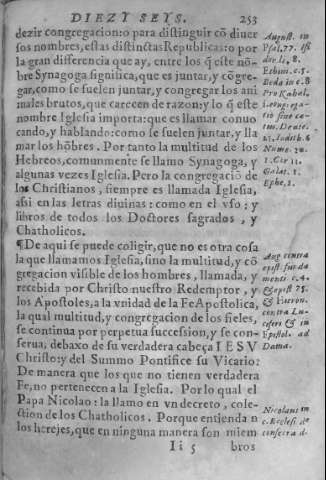 DIEZ Y SEYS. 253
dezir congregacion: o para distinguir cõ diuer
sos nombres, estas distinctas Republicas: o por
la gran differencia que ay, entre los q̃ este nõ-
bre Synagoga significa, que es juntar, y cõgre-
gar, como se suelen juntar, y congregar los ani
males brutos, que carecen de razon: y lo q̃ este
nombre Iglesia importa: que es llamar conuo
cando, y hablando: como se suelen juntar, y lla
mar los hõbres. Por tanto la multitud de los
Hebreos, comunmente se llamo Synagoga, y
algunas vezes Iglesia. Pero la congregaciõ de
los Christianos, siempre es llamada Iglesia,
asi en las letras diuinas: como en el vso; y
libros de todos los Doctores sagrados, y
Chatholicos.
¶De aqui se puede coligir, que no es otra cosa
la que llamamos Iglesia, sino la multitud, y cõ
gregacion visible de los hombres, llamada, y
recebida por Christo nuestro Redemptor, y
los Apostoles, a la vnidad de la Fe Apostolica,
la qual multitud, y congregacion de los fieles,
se continua por perpetua succession, y se con-
serua, debaxo de su verdadera cabeça IESV
Christo: y del Summo Pontifice su Vicario:
De manera que los que no tienen verdadera
Fe, no pertenecen a la Iglesia. Por lo qual el
Papa Nicolao: la llamo en vn decreto, cole-
ction de los Chatholicos. Porque entienda n
los herejes, que en ninguna manera son miem
Ii 5 bros
August. in
Psal. 77. Isi
dor. li. 8.
Ethim. c. 5.
Beda in c. 8
Pro Rabal.
1. cong: ega-
tio sine cœ-
tus. Deute.
23. Iudith. 6
Nume. 20.
1. Cor 11.
Galat. 1.
Ephe. 1.
Aug contra
epist. funda
menti. c. 4.
& epist 75.
& Hieron.
contra Lu-
cifers & in
Epistol. ad
Dama.
Nicolaus in
c. Ecclesi. de
consecra. d.